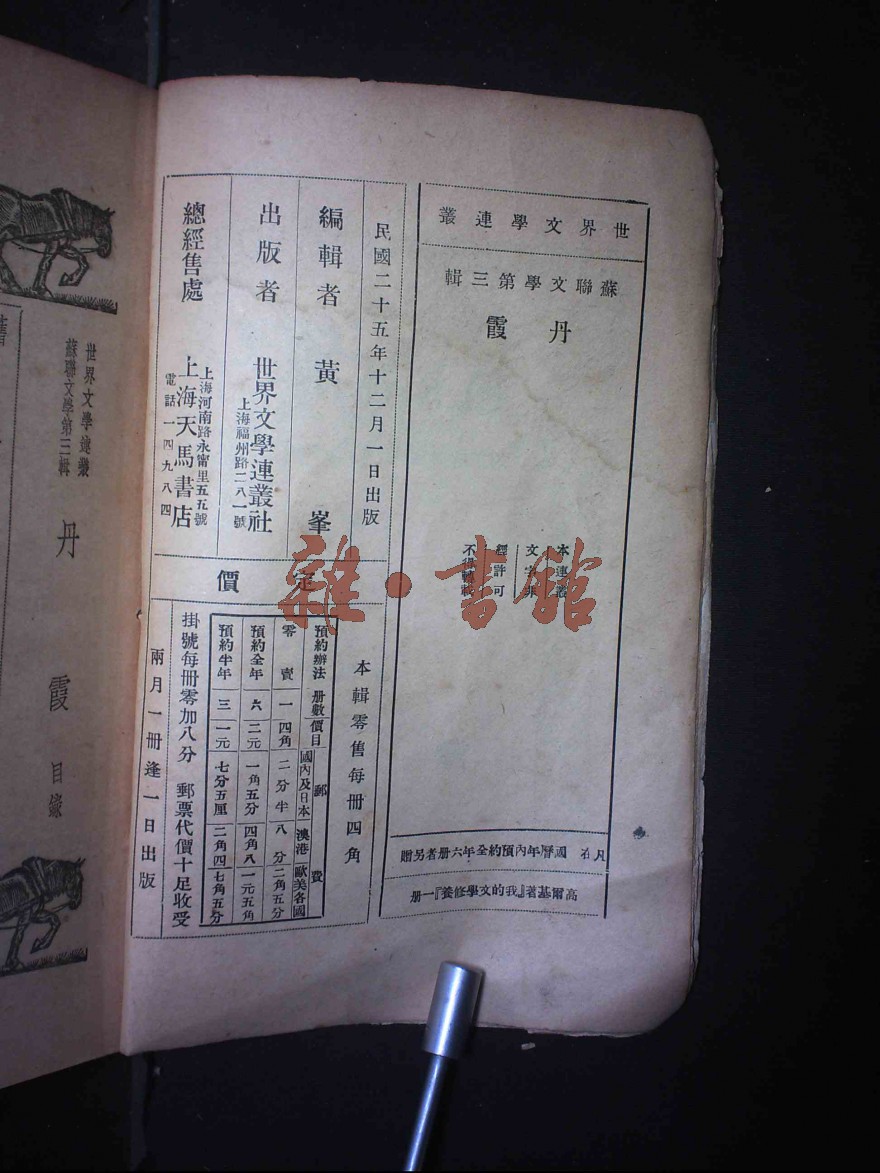 世界文學連叢
蘇聯文學第三輯
丹霞
本連叢
文字非
經許可
不得轉載
凡在國曆年內預約全年六册者另贈
高爾基著『我的文學修養』一册
民國二十五年十二月一日出版
編輯者 黃峯
出版者 世界文學連叢社
上海福州路二八一號
總經售處 上海天馬書店
上海河南路永甯里五五號
電話一四九八四
定價
本輯零售每册四角
預約辦法 册數 價目 郵費 國內及日本 澳港 歐美各國
零賣 一 四角 二分半 八分 二角五分
預約全年 六 二元 一角五分 四角八 一元五角
預約半年 三 一元 七分五厘 二角四 七角五分
掛號每册零加八分 郵票代價十足收受
兩月一册逢一日出版
世界文學連叢
蘇聯文學第三輯
丹霞 目錄
雜·書館